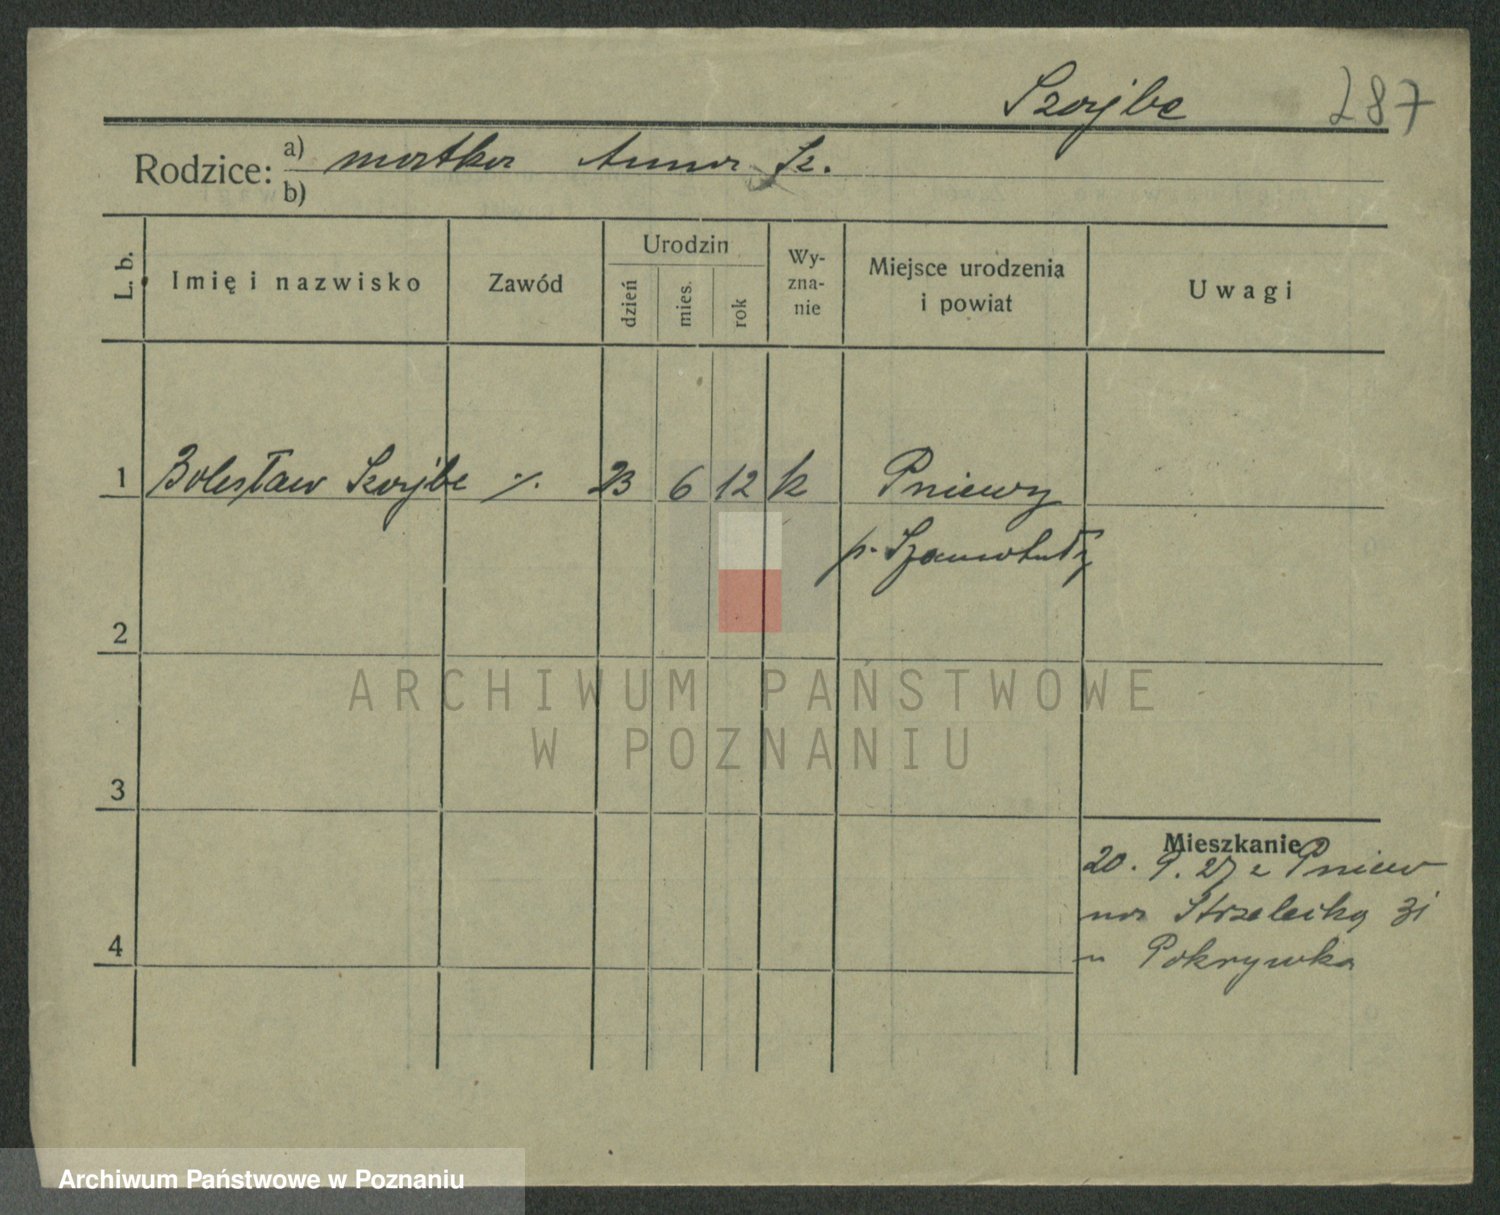 Szajbe 287
Rodzice: a) matka Anna Sz.
b)
L. b. Imię i nazwisko Zawód Urodzin dzień mies. rok Wy-zna-nie Miejsce urodzenia i powiat Uwagi
1 Bolesław Szajbe ·/. 23 6 12 k Pniewy
p. Szamotuły
2
ARCHIWUM PAŃSTWOWE
W POZNANIU
3
Mieszkanie
20. 9. 27 z Pniew
na Strzelecka 31
u Pokrywka
4
Archiwum Państwowe w Poznaniu